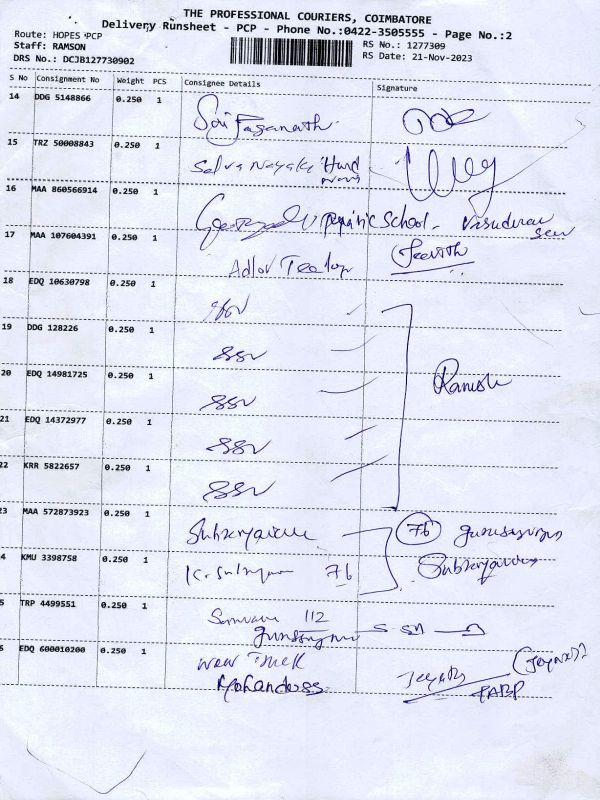 THE PROFESSIONAL COURIERS, COIMBATORE
Delivery Runsheet - PCP - Phone No.:0422-3505555 - Page No.:2
Route: HOPES PCP
Staff: RAMSON RS No.: 1277309
DRS No.: DCJB127730902 RS Date: 21-Nov-2023
S No Consignment No Weight PCS Consignee Details Signature
14 DDG 5148866 0.250 1
Sri Jaganath
15 TRZ 50008843 0.250 1
Selva Nayaki Hard
16 MAA 860566914 0.250 1
School - Vasudevan
17 MAA 107604391 0.250 1
Adlov Jeevith
18 EDQ 10630798 0.250 1
SSV
19 DDG 128226 0.250 1
SSV
20 EDQ 14981725 0.250 1 Ramesh
SSV
21 EDQ 14372977 0.250 1
SSV
22 KRR 5822657 0.250 1
SSV
23 MAA 572873923 0.250 1
76
4 KMU 3398758 0.250 1
76
5 TRP 4499551 0.250 1
112
6 EDQ 600010200 0.250 1
Mohandoss